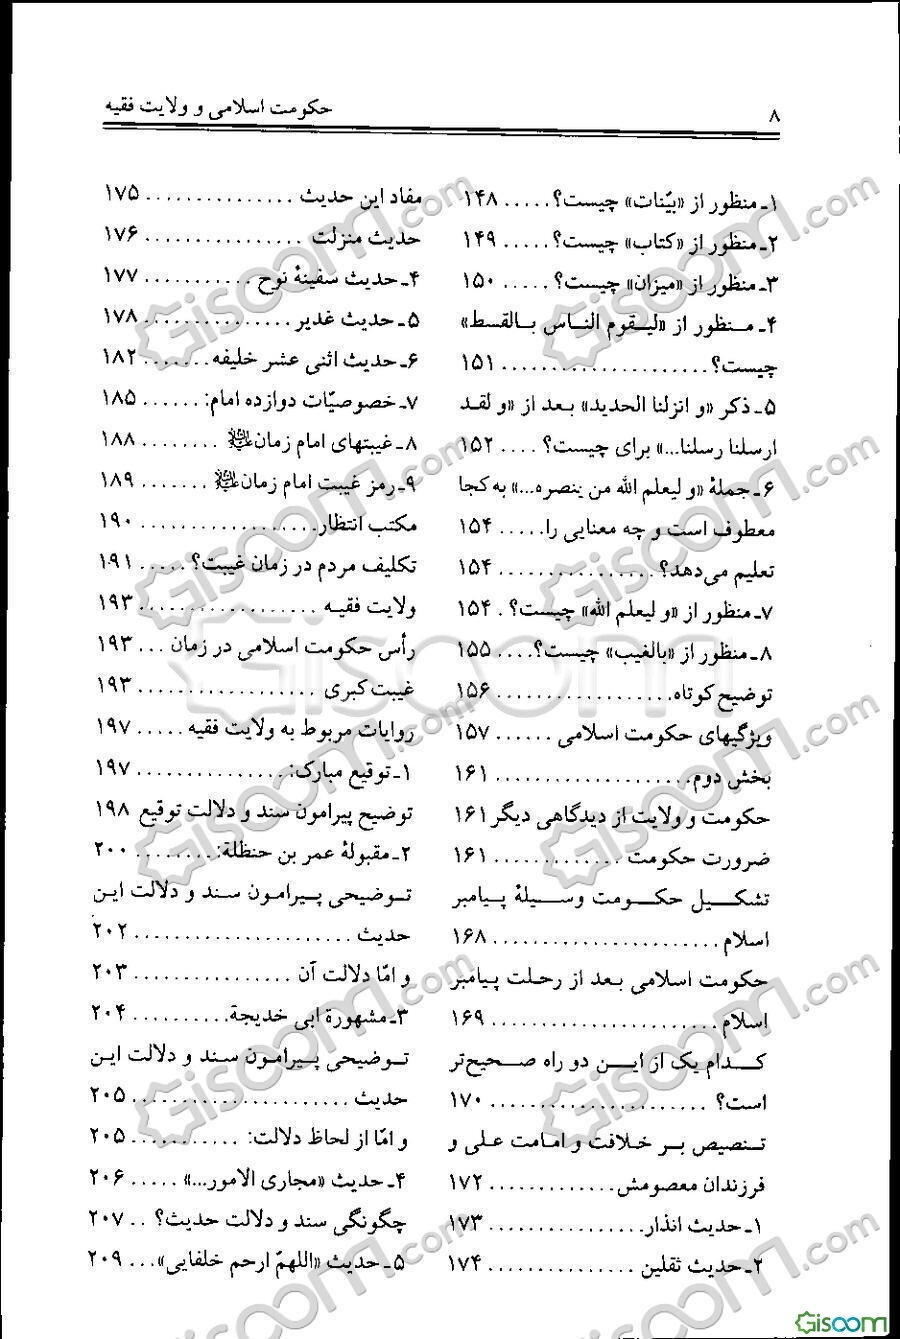 ۸
حکومت اسلامی و ولایت فقیه
۱ـ منظور از «بیّنات» چیست؟ ..... ۱۴۸
۲ـ منظور از «کتاب» چیست؟ ..... ۱۴۹
۳ـ منظور از «میزان» چیست؟ ..... ۱۵۰
۴ـ منظور از «لیقوم الناس بالقسط»
چیست؟ ..................... ۱۵۱
۵ـ ذکر «و انزلنا الحدید» بعد از «و لقد
ارسلنا رسلنا...» برای چیست؟ .... ۱۵۲
۶ـ جملهٔ «و لیعلم الله من ینصره...» به کجا
معطوف است و چه معنایی را ..... ۱۵۴
تعلیم می‌دهد؟ ................ ۱۵۴
۷ـ منظور از «و لیعلم الله» چیست؟ . ۱۵۴
۸ـ منظور از «بالغیب» چیست؟ .... ۱۵۵
توضیح کوتاه .................. ۱۵۶
ویژگیهای حکومت اسلامی ...... ۱۵۷
بخش دوم .................... ۱۶۱
حکومت و ولایت از دیدگاهی دیگر ۱۶۱
ضرورت حکومت ............. ۱۶۱
تشکیل حکومت وسیلهٔ پیامبر
اسلام ....................... ۱۶۸
حکومت اسلامی بعد از رحلت پیامبر
اسلام ....................... ۱۶۹
کدام یک از این دو راه صحیح‌تر
است؟ ...................... ۱۷۰
تنصیص بر خلافت و امامت علی و
فرزندان معصومش ............. ۱۷۲
۱ـ حدیث انذار ................ ۱۷۳
۲ـ حدیث ثقلین ............... ۱۷۴
مفاد این حدیث ............... ۱۷۵
حدیث منزلت ................ ۱۷۶
۴ـ حدیث سفینهٔ نوح ........... ۱۷۷
۵ـ حدیث غدیر ............... ۱۷۸
۶ـ حدیث اثنی عشر خلیفه ....... ۱۸۲
۷ـ خصوصیّات دوازده امام: ...... ۱۸۵
۸ـ غیبتهای امام زمان ........ ۱۸۸
۹ـ رمز غیبت امام زمان ....... ۱۸۹
مکتب انتظار .................. ۱۹۰
تکلیف مردم در زمان غیبت؟ ..... ۱۹۱
ولایت فقیه .................. ۱۹۳
رأس حکومت اسلامی در زمان ... ۱۹۳
غیبت کبری .................. ۱۹۳
روایات مربوط به ولایت فقیه ..... ۱۹۷
۱ـ توقیع مبارک: ............... ۱۹۷
توضیح پیرامون سند و دلالت توقیع ۱۹۸
۲ـ مقبولهٔ عمر بن حنظلة: ........ ۲۰۰
توضیحی پیرامون سند و دلالت این
حدیث ...................... ۲۰۲
و امّا دلالت آن ................ ۲۰۳
۳ـ مشهورهٔ ابی خدیجة .......... ۲۰۴
توضیحی پیرامون سند و دلالت این
حدیث ...................... ۲۰۵
و امّا از لحاظ دلالت: ........... ۲۰۵
۴ـ حدیث «مجاری الامور...» ..... ۲۰۶
چگونگی سند و دلالت حدیث؟ .. ۲۰۷
۵ـ حدیث «اللهمّ ارحم خلفایی» ... ۲۰۹
Gisoom